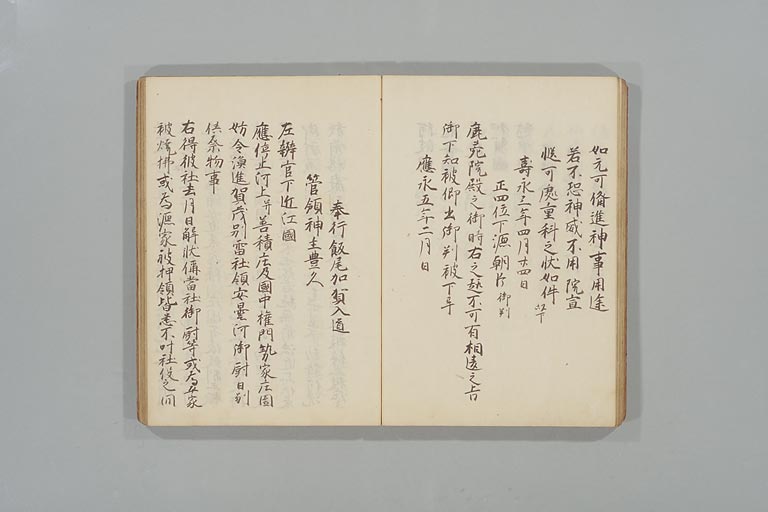 如元可備進神事用途
若不恐神威不用院宣
慥可處重科之状如件 以下
壽永三年四月廿四日
正四位下源朝臣 御判
鹿苑院殿之御時右之趣不可有相違之旨
御下知被仰出御判被下畢
應永五年二月日
奉行飯尾加賀入道
管領神主豊久
左辨官下近江國
應停止河上并善積庄及國中権門勢家庄園
妨令漁進賀茂別雷社領安曇河御厨日別
供祭物事
右得彼社去月日解状偁當社御厨等或為平家
被焼拂或為源家被押領皆悉不叶社役之間